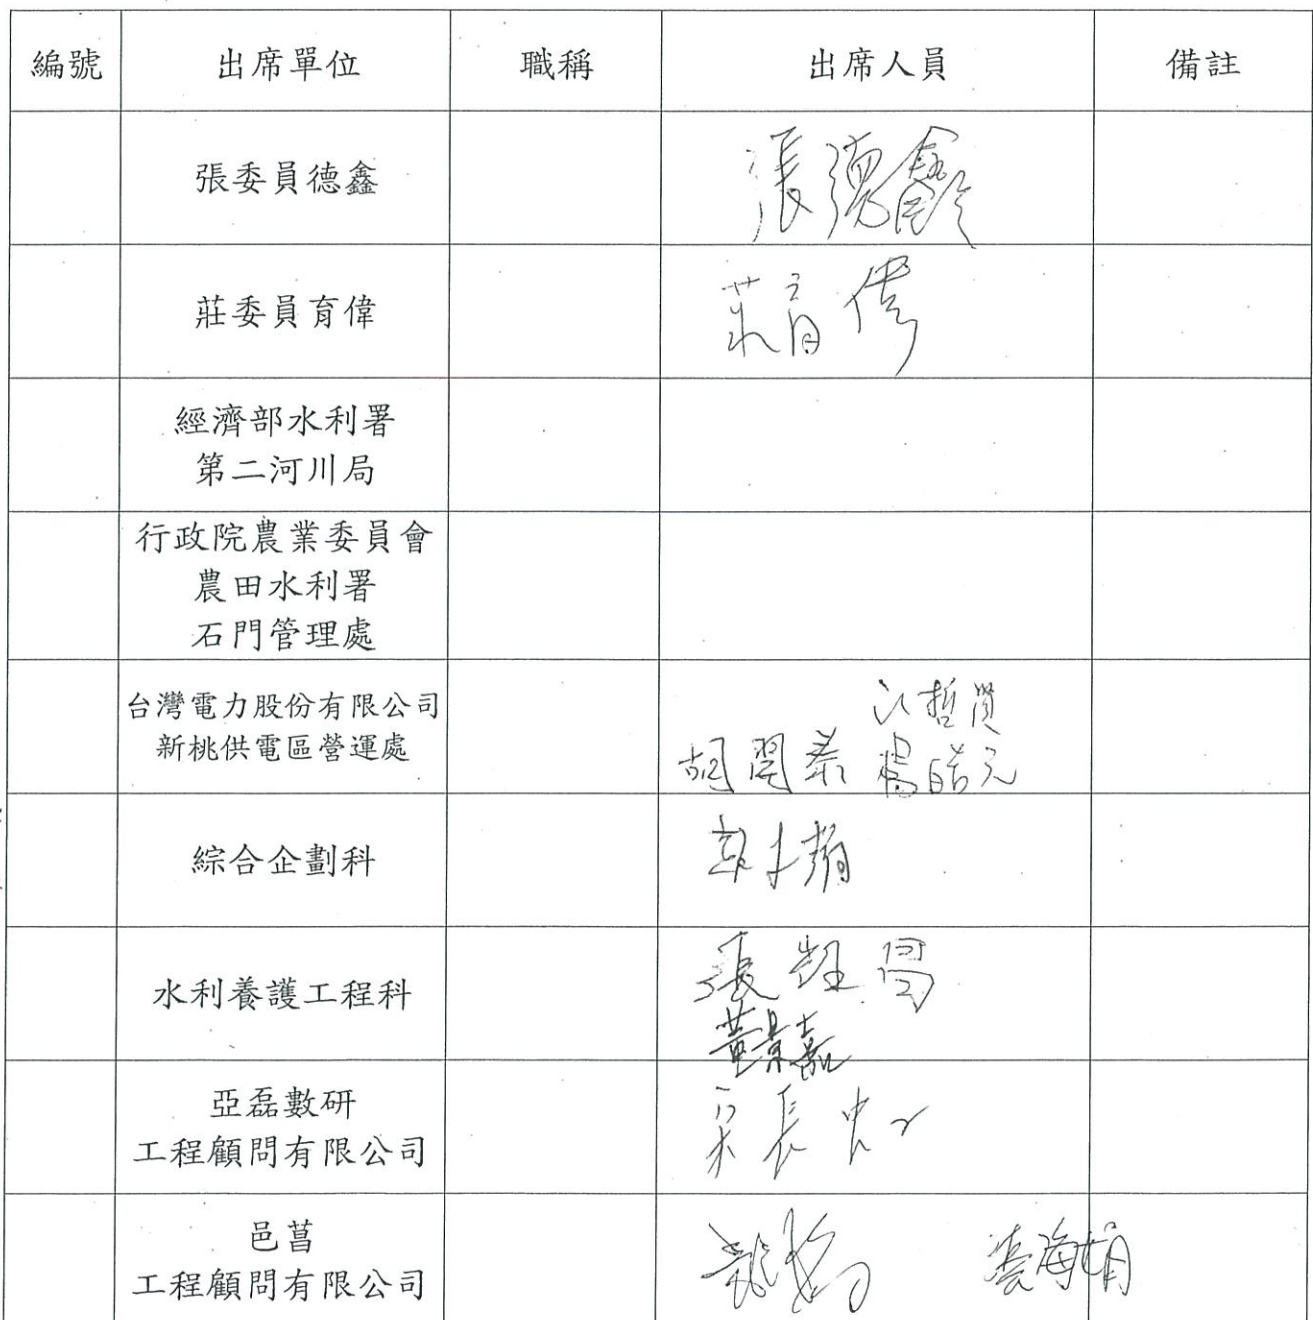 編號 出席單位 職稱 出席人員 備註
張委員德鑫 張德鑫
莊委員育偉 莊育偉
經濟部水利署
第二河川局
行政院農業委員會
農田水利署
石門管理處
台灣電力股份有限公司
新桃供電區營運處
江哲賢
胡開泰 楊皓元
綜合企劃科
水利養護工程科
張
黃景嘉
亞磊數研
工程顧問有限公司
宋長虹
邑菖
工程顧問有限公司